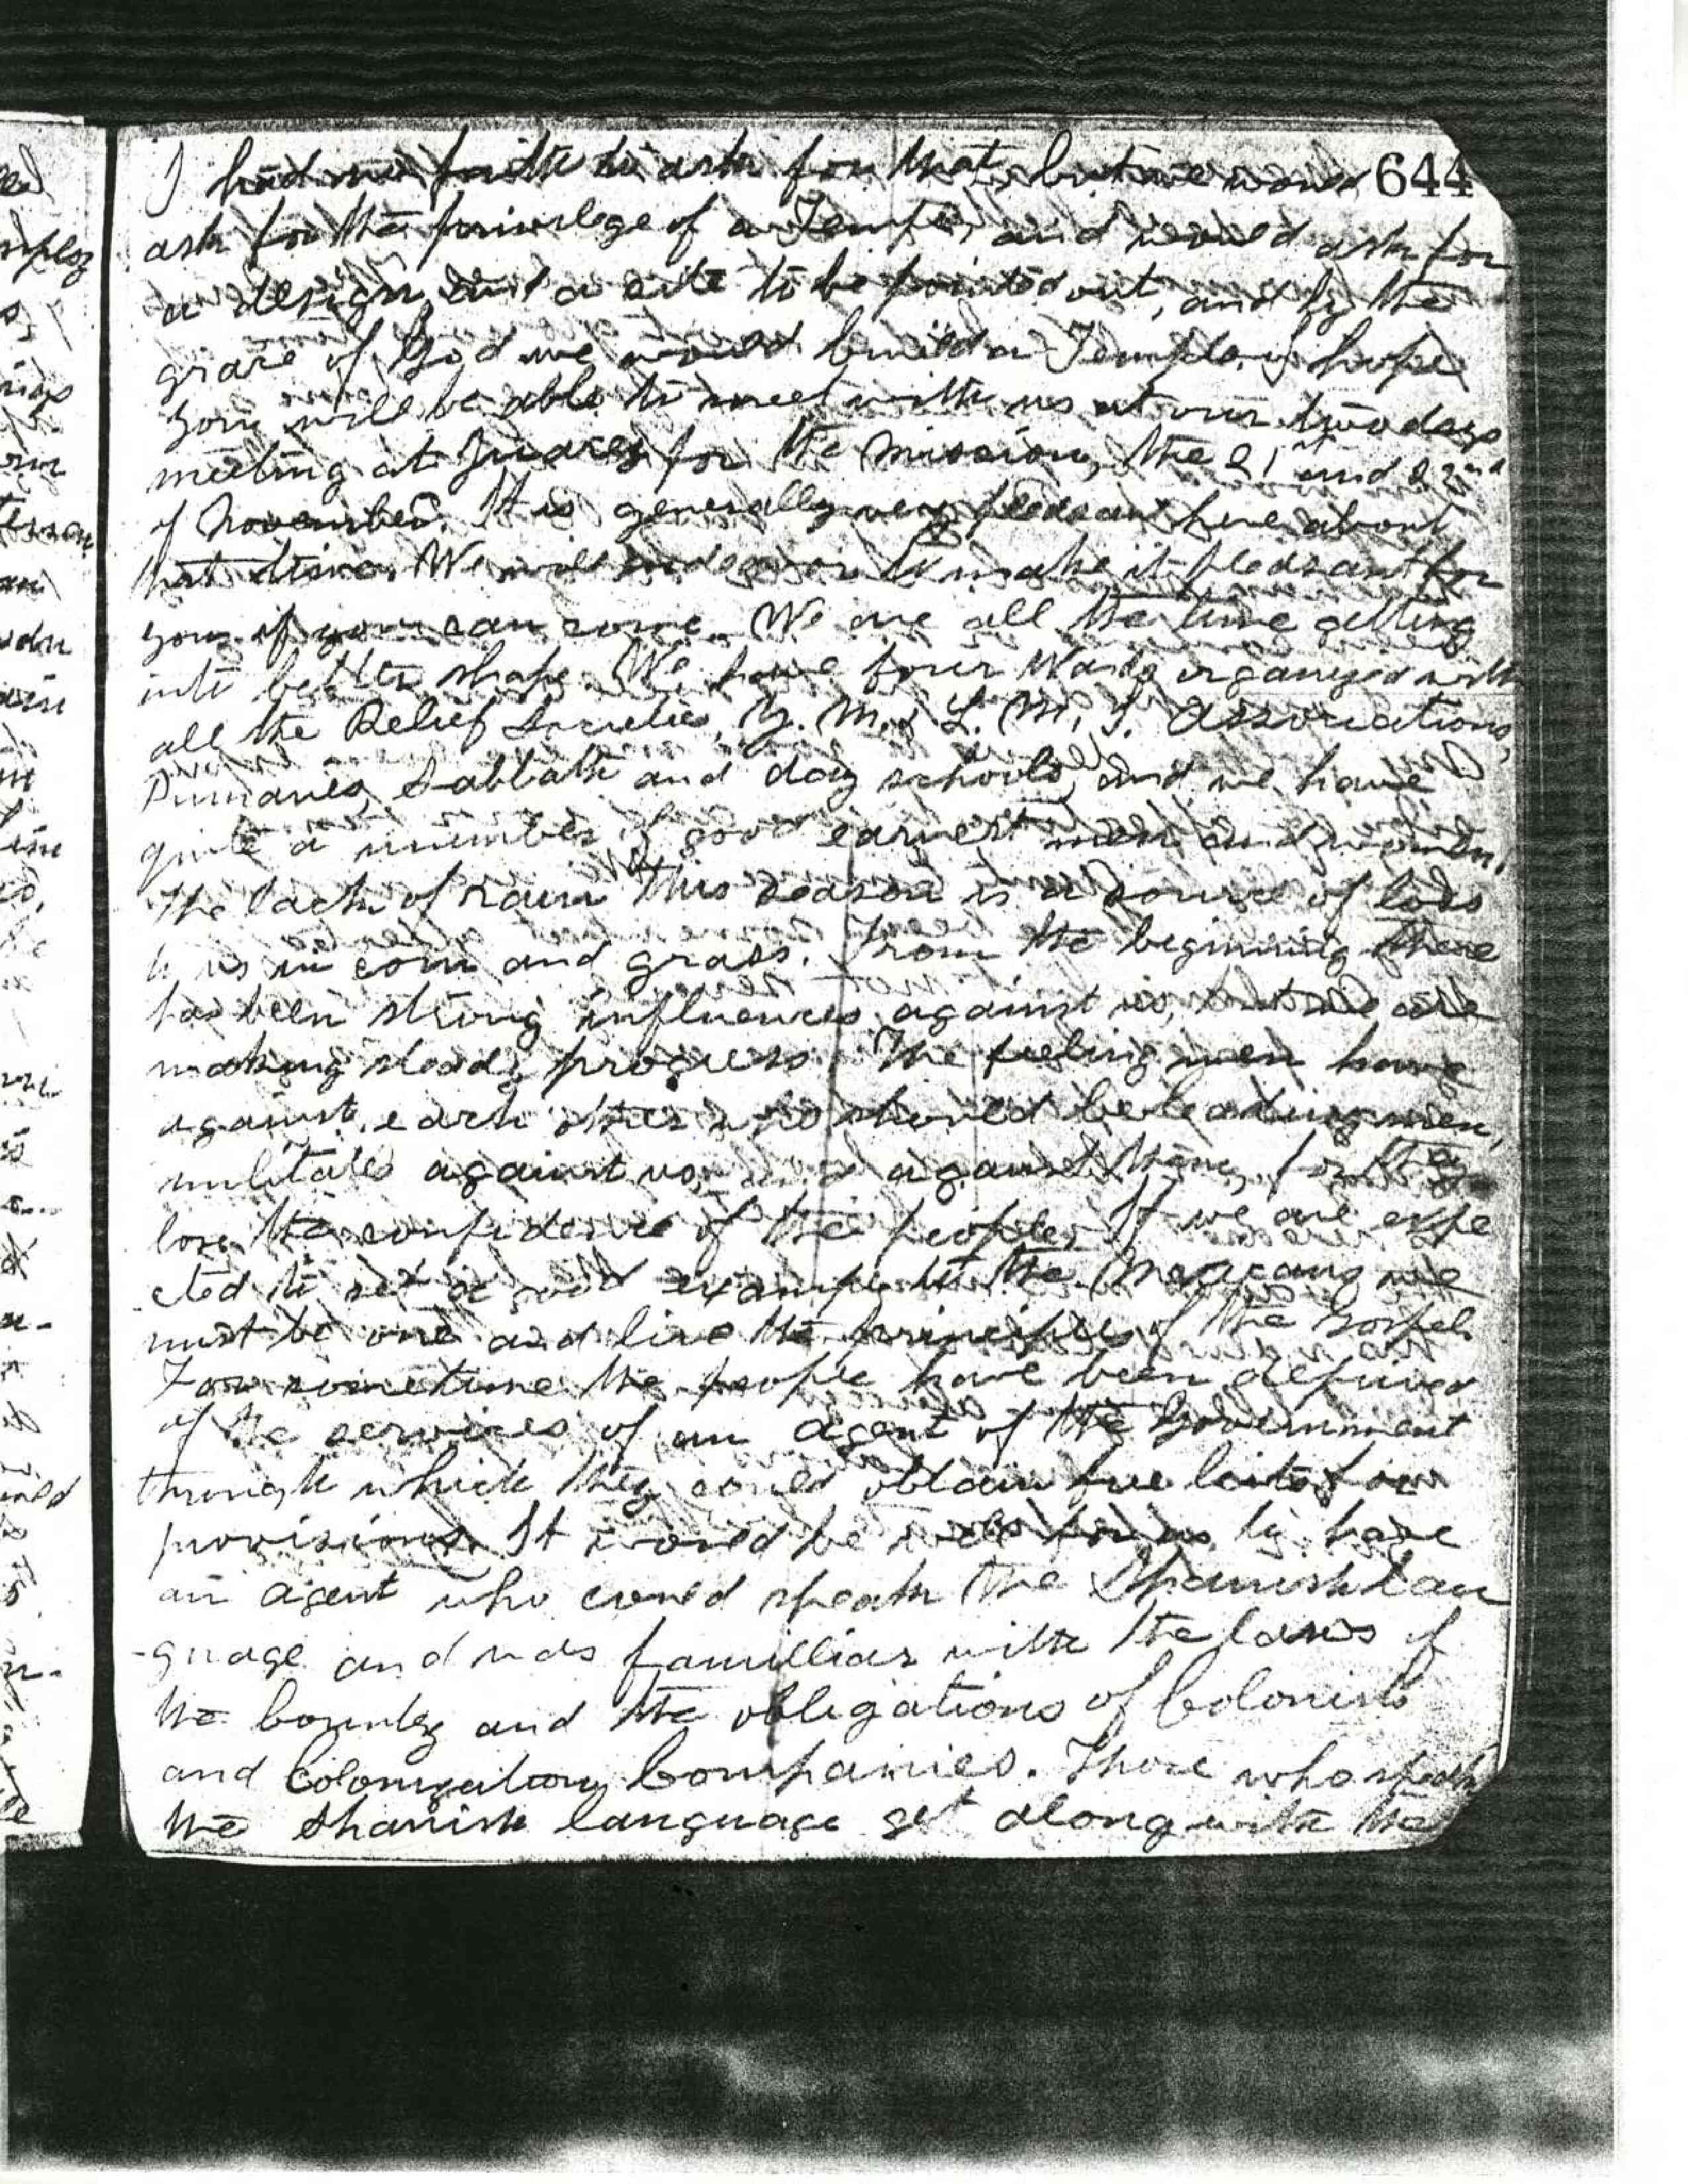 644
I had no faith to ask for that, but we would
ask for the privilege of a Temple, and would ask for
a design, and a site to be pointed out, and by the
grace of God we would build a Temple. I hope
you will be able to meet with us at our two days
meeting at Juarez for the Mission, the 21st and 22nd
of November. It is generally very pleasant here about
that time. We will endeavor to make it pleasant for
you if you can come. We are all the time getting
into better shape. We have four Wards organized with
all the Relief Societies, Y. M. & L. M. I. Associations,
Primaries, Sabbath and day schools, and we have
quite a number of good earnest men and women.
The lack of rain this season is a source of loss
to us in corn and grass. From the beginning there
has been strong influences against us, but we are
making steady progress. The feeling men have
against each other who should be leading men,
militates against us, and against them, for they
lose the confidence of the people. If we are expe
cted to set a good example to the Mexicans we
must be one and live the principles of the Gospel.
For sometime the people have been deprived
of the services of an agent of the Government
through which they could obtain free lists for
provisions. It would be well for us to have
an agent who could speak the Spanish lan
-guage and was familliar with the laws of
the country and the obligations of Colonists
and Colonization Companies. Those who speak
the Spanish language get along with the